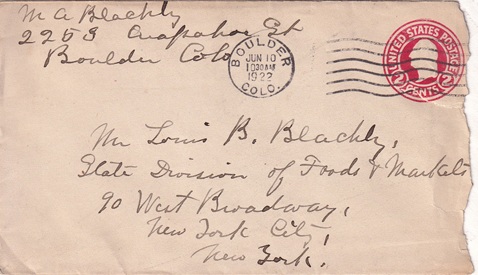 M A Blachly
2253 Arapahoe St
Boulder Colo
BOULDER
JUN 10
10 30 AM
1922
COLO.
UNITED STATES POSTAGE
2 CENTS 2
Mr Louis B. Blachly,
State Division of Foods & Markets
90 West Broadway,
New York City,
New York.